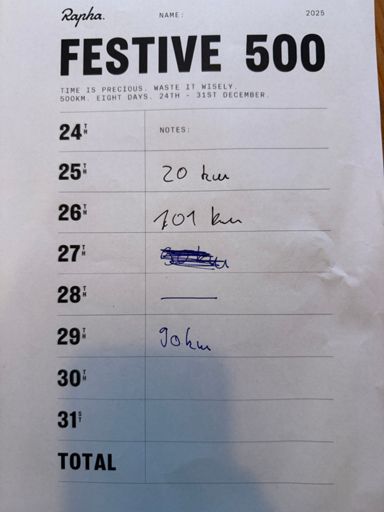 Rapha.
NAME:
2025
FESTIVE 500
TIME IS PRECIOUS. WASTE IT WISELY.
500KM. EIGHT DAYS. 24TH - 31ST DECEMBER.
24TH NOTES:
25TH 20 km
26TH 101 km
27TH
28TH —
29TH 90km
30TH
31ST
TOTAL